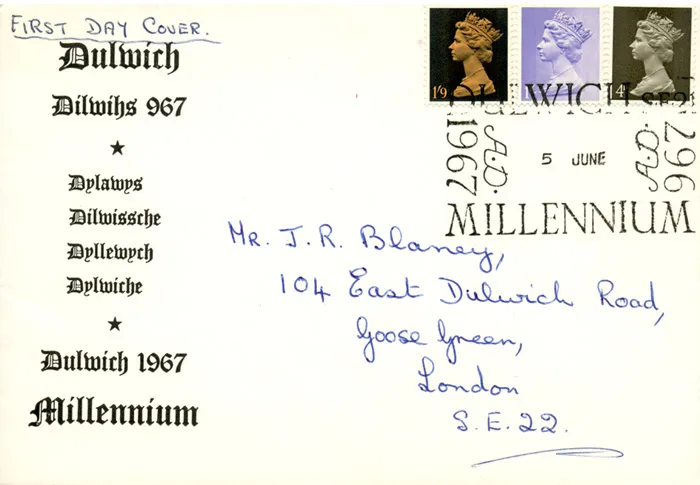 FIRST DAY COVER.
Dulwich
Dilwihs 967
Dylawys
Dilwissche
Dyllewych
Dylwiche
Dulwich 1967
Millennium
1/9
4d
DULWICH SE21
1967 A.D.
5 JUNE
A.D. 967
MILLENNIUM
MR. J. R. Blaney,
104 East Dulwich Road,
Goose Green,
London
S.E.22.